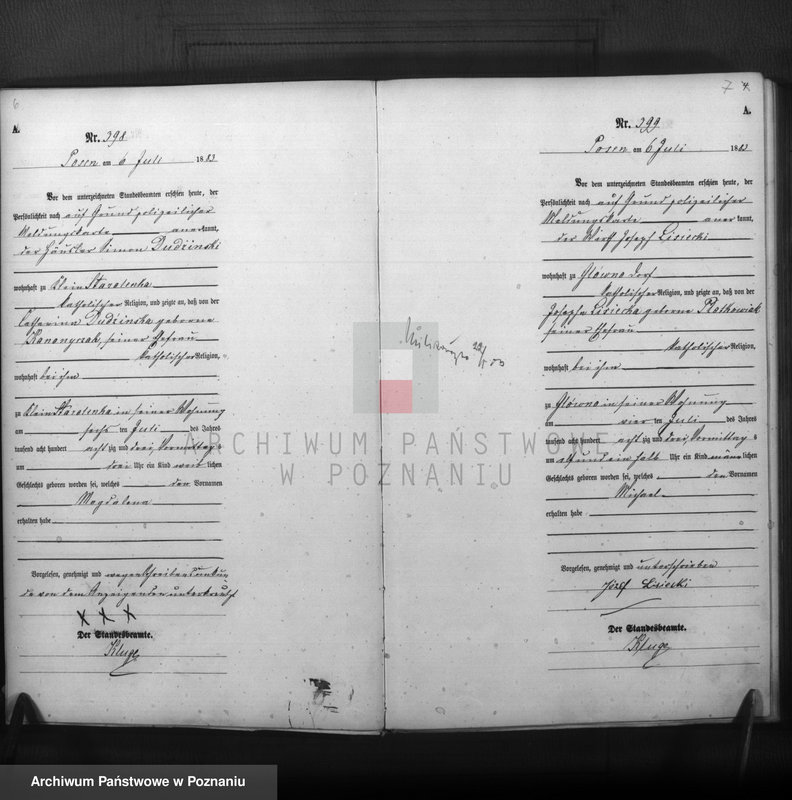 6
A.
Nr. 398
Posen am 6 Juli 1883
Vor dem unterzeichneten Standesbeamten erschien heute, der
Persönlichkeit nach auf Grund polizeilicher
Meldungskarte anerkannt,
der Häusler Simon Dudzinski
wohnhaft zu Klein Starolenka
katholischer Religion, und zeigte an, daß von der
Catharina Dudzinska geborene
Kanonyczak, seiner Ehefrau
katholischer Religion,
wohnhaft bei ihm
zu Klein Starolenka in seiner Wohnung
am sechs ten Juli des Jahres
tausend acht hundert acht zig und drei Vormittags
um drei Uhr ein Kind weiblichen
Geschlechts geboren worden sei, welches den Vornamen
Magdalena
erhalten habe
Vorgelesen, genehmigt und wegen Schreibensunkun
de von dem Anzeigenden unterkreuzt
X X X
Der Standesbeamte.
Kluge
7
A.
Nr. 399
Posen am 6 Juli 1883
Vor dem unterzeichneten Standesbeamten erschien heute, der
Persönlichkeit nach auf Grund polizeilicher
Meldungskarte anerkannt,
der Wirth Joseph Lisiecki
wohnhaft zu Główno Dorf
katholischer Religion, und zeigte an, daß von der
Josepha Lisiecka geborene Ratkowiak
seiner Ehefrau
katholischer Religion,
wohnhaft bei ihm
zu Główno in seiner Wohnung
am vier ten Juli des Jahres
tausend acht hundert acht zig und drei Vormittags
um ein halb Uhr ein Kind männlichen
Geschlechts geboren worden sei, welches den Vornamen
Michael
erhalten habe
Vorgelesen, genehmigt und unterschrieben
Józef Lisiecki
Der Standesbeamte.
Kluge
ARCHIWUM PAŃSTWOWE
W POZNANIU
Archiwum Państwowe w Poznaniu